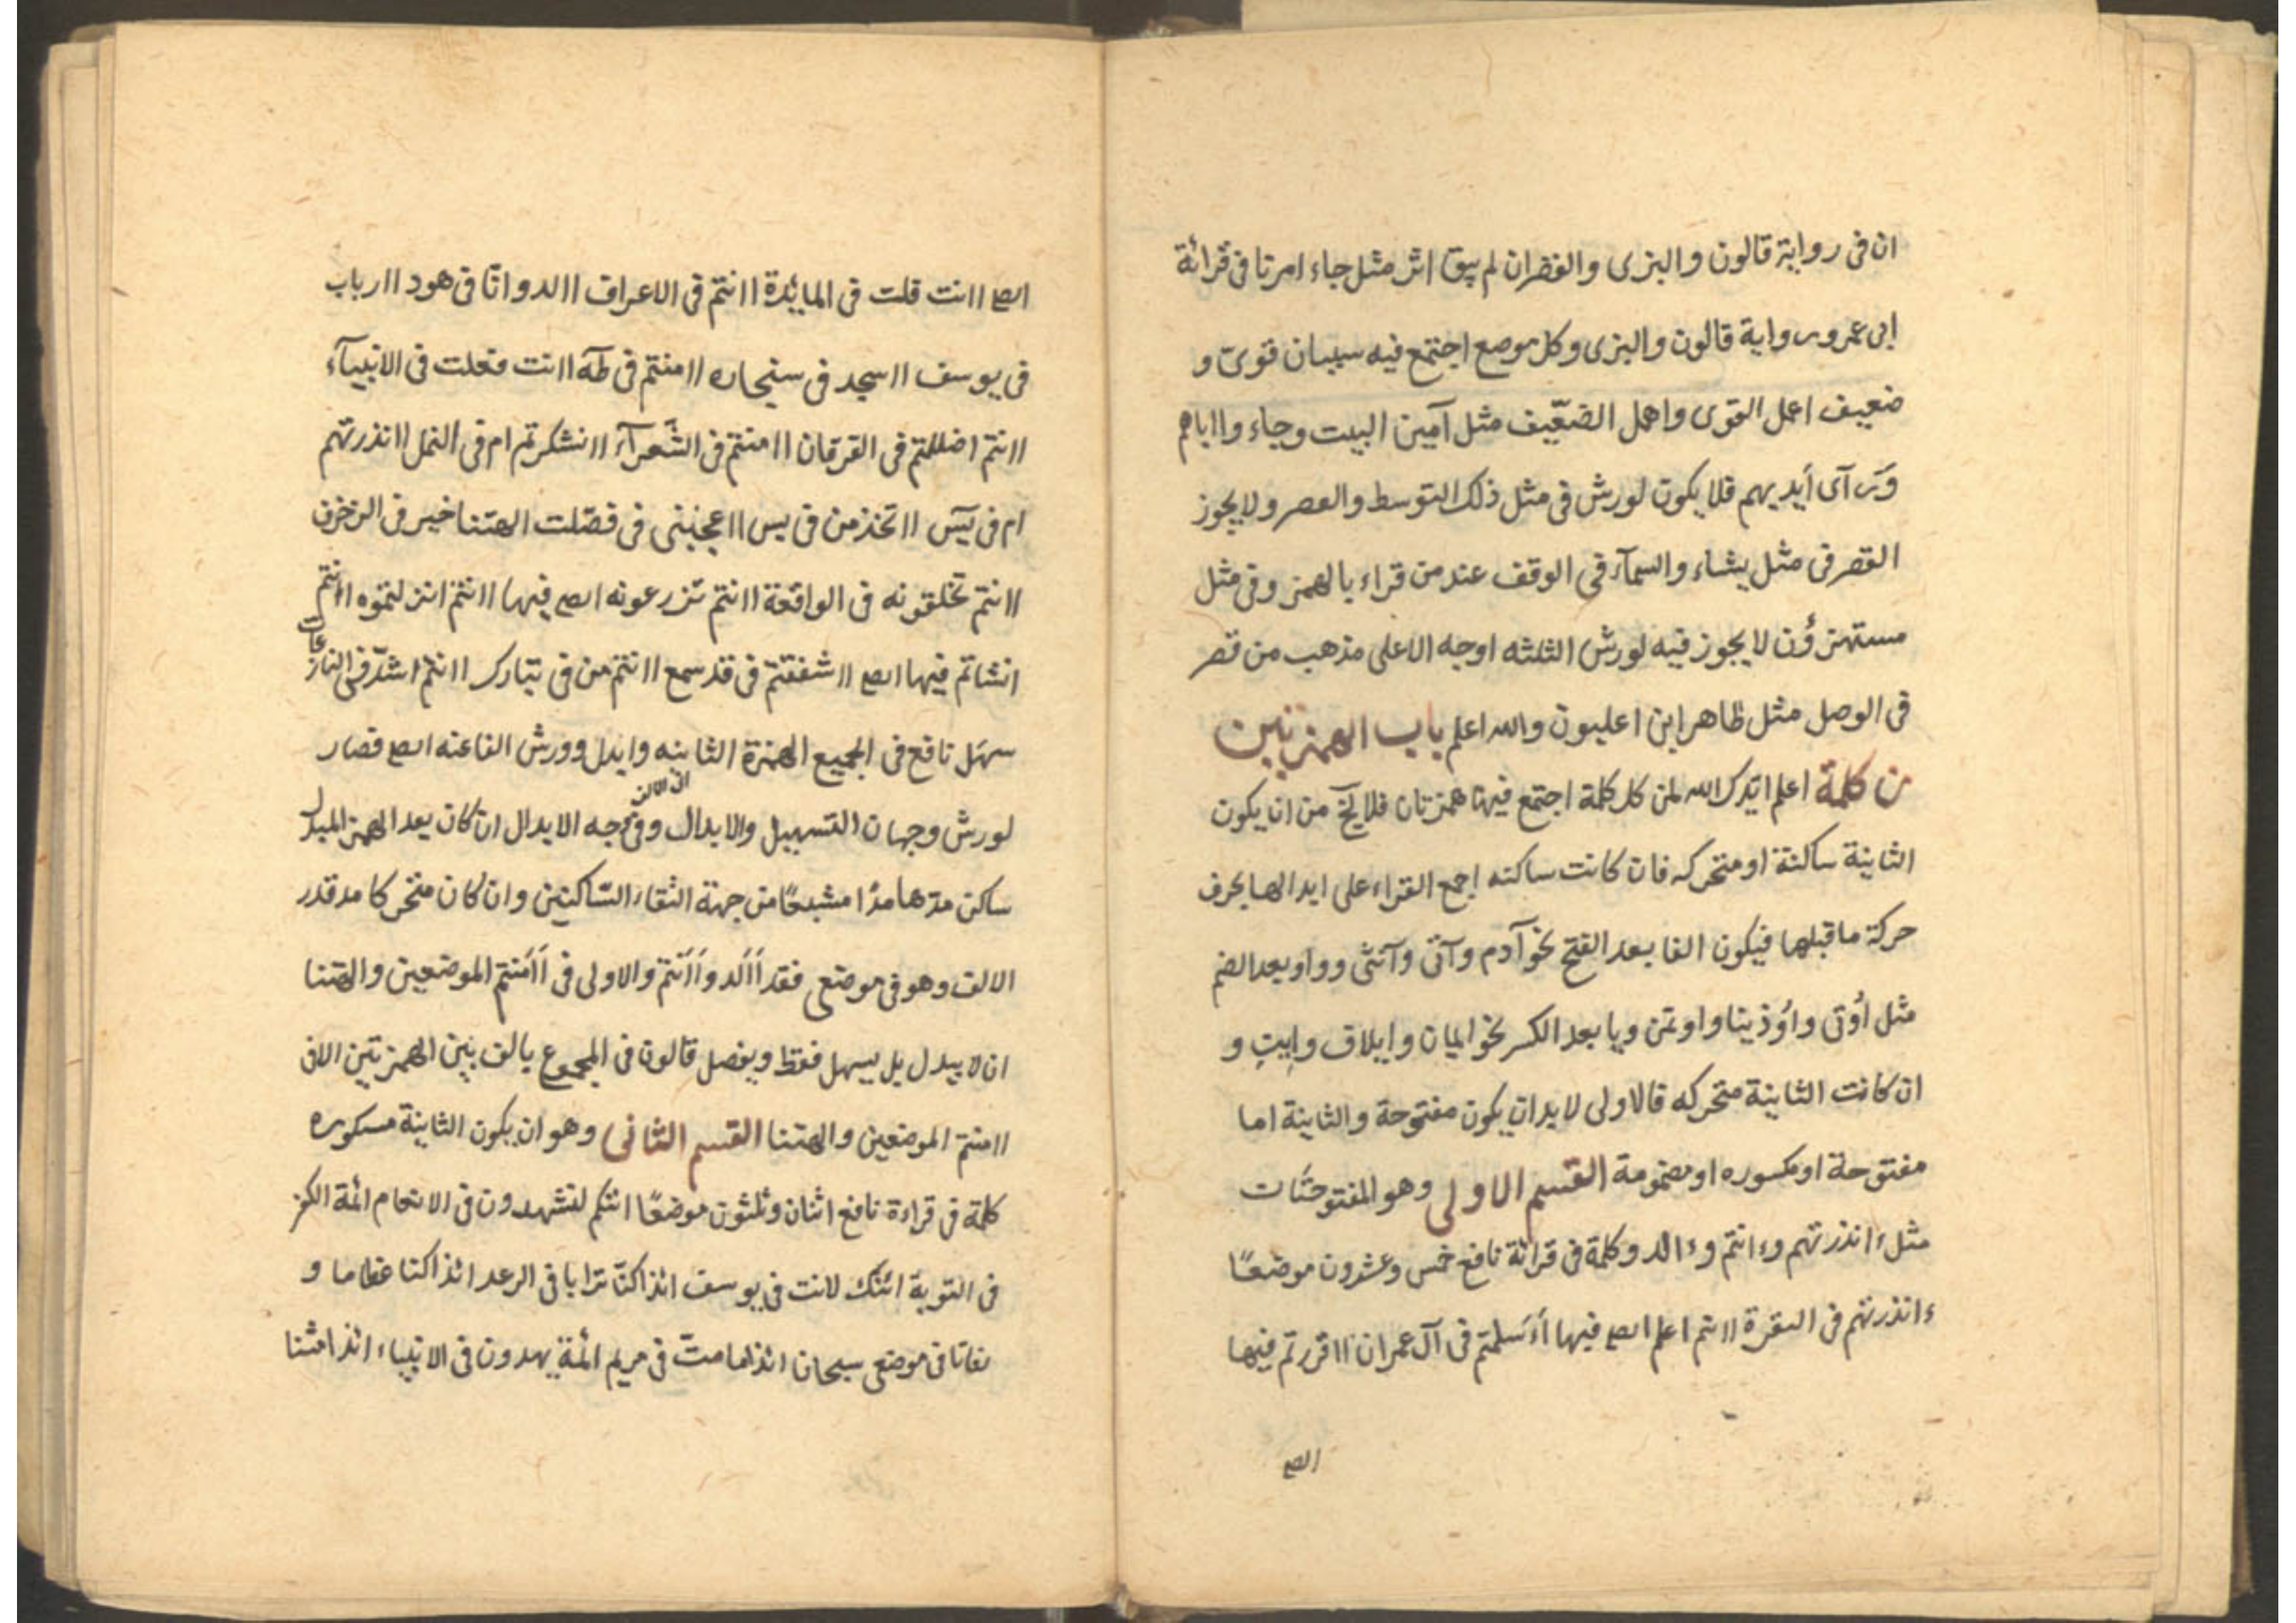 ان فى رواية قالون والبزى والقصر ان لم يبق اثر مثل جاء امرنا فى قرائة
ابى عمرو ورواية قالون والبزى وكل موضع اجتمع فيه سببان قوى و
ضعيف اعمل القوى واهمل الضعيف مثل آمين البيت وجاء وااباهم
وَرَآى اَيديهم فلا يكون لورش فى مثل ذلك التوسط والقصر ولا يجوز
القصر فى مثل يشاء والسمآء فى الوقف عند من قراء بالهمز وفى مثل
مستهزؤن لا يجوز فيه لورش الثلثه اوجه الا على مذهب من قصر
فى الوصل مثل طاهر ابن اعليون والله اعلم باب الهمزتين
من كلمة اعلم ايدك الله ان كل كلمة اجتمع فيها همزتان فلا يخ من ان يكون
الثانية ساكنة او متحركه فان كانت ساكنه اجمع القراء على ابدالها بحرف
حركة ما قبلها فيكون الفا بعد الفتح نحو آدم وآتى وآنثى وواو بعد الضم
مثل اُوتى واُوذينا واوتمن ويا بعد الكسر نحو ايمان وايلاف وايتِ و
ان كانت الثانية متحركه فالاولى لابد ان يكون مفتوحة والثانية اما
مفتوحة او مكسوره او مضمومة القسم الاولى وهو المفتوحتات
مثل ءانذرتهم وءانتم وءالد وكلمة فى قرائة نافع خمس وعشرون موضعًا
ءانذرتهم فى البقرة ءانتم اعلم ايضا فيها أأسلمتم فى آل عمران ااقررتم فيها
ايضا
ايضا اانت قلت فى المائدة اانتم فى الاعراف االد وانّا فى هود اارباب
فى يوسف ااسجد فى سبحاره اامنتم فى طه اانت فعلت فى الانبيآء
اانتم اضللتم فى الفرقان اامنتم فى الشعرآء اانشكرتم ام فى النمل اانذرتهم
ام فى يٓس ااتخذ من فى يس ااعجبنى فى فصّلت الهتنا خير فى الزخرف
اانتم تخلقونه فى الواقعة اانتم تزرعونه ايضا فيها اانتم انزلتموه اانتم
انشاتم فيها ايضا ااشفقتم فى قد سمع اانتم من فى تبارك اانتم اشدّ فى النازعات
سهّل نافع فى الجميع الهمزة الثانيه وابدل وورش الفا عنه ايضا فصار
لورش وجهان التسهيل والابدال وفى وجه الابدال ان كان بعد الهمز المبدل
ساكن مدّها مدّا مشبعًا من جهة التقاء السّاكنين وان كان متحركا مد قدر
الالف وهو فى موضعى فقد أَأَلد وأَأَنتم والاولى فى أَأَمنتم الموضعين والهتنا
ان لا يبدل بل يسهل فقط ويفصل قالون فى المجموع بالف بين الهمزتين الا فى
اامنتم الموضعين والهتنا القسم الثانى وهو ان يكون الثانية مسكوره
كلمة فى قراءة نافع اثنان وثلثون موضعًا ائنكم لتشهدون فى الانعام ائمة الكفر
فى التوبة ائنك لانت فى يوسف ائذا كنّا ترابا فى الرعد ائذا كنا عظاما و
رفاتا فى موضعى سبحان ائذا ما متّ فى مريم ائمة يهدون فى الانبياء ائذا متنا